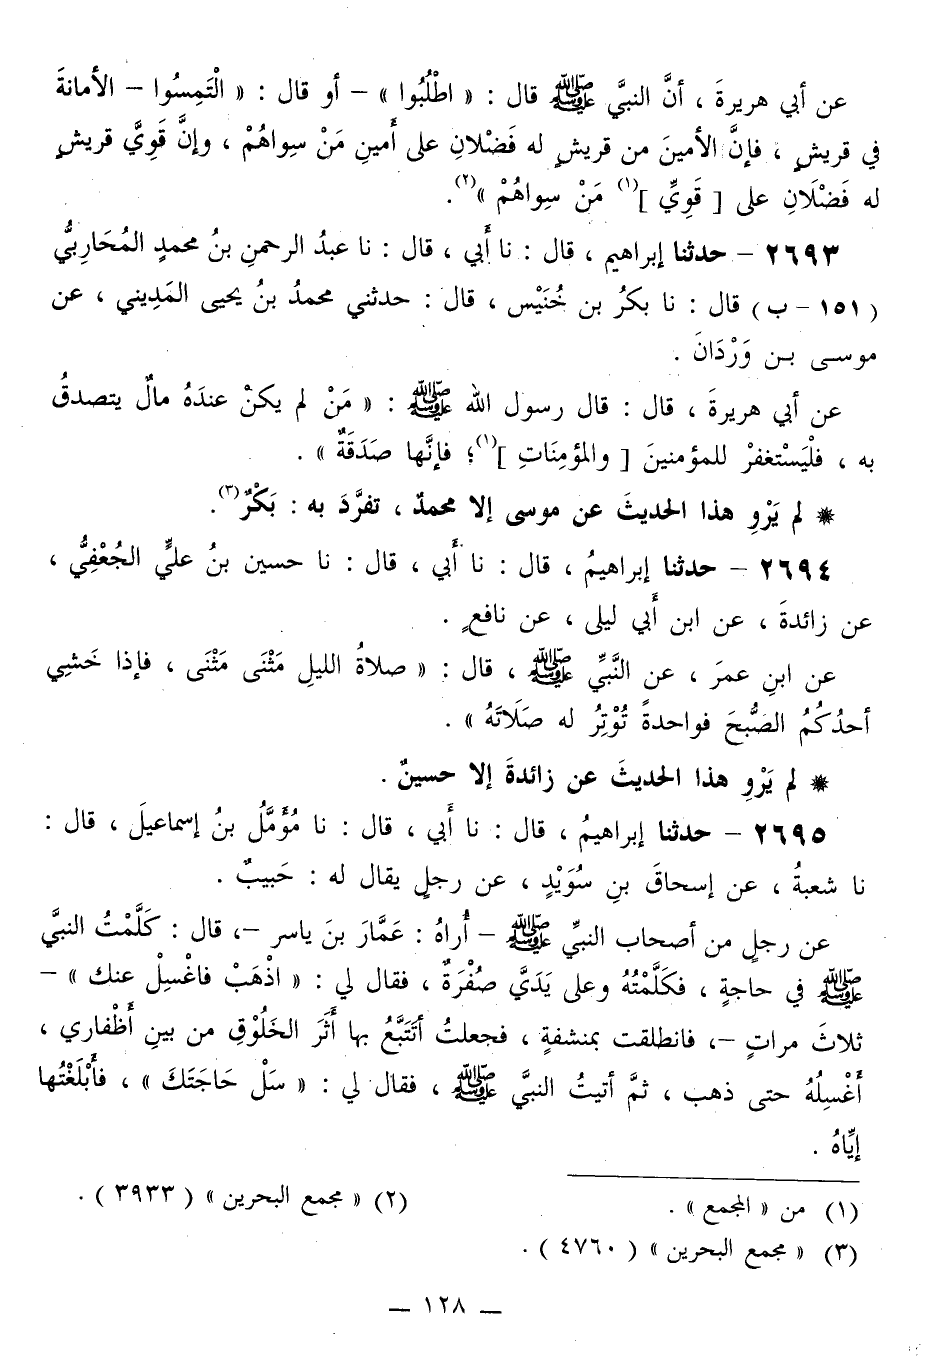 عن أبي هريرةَ ، أنَّ النبيَّ ﷺ قال : « اطْلُبُوا » – أو قال : « الْتَمِسُوا – الأمانةَ
في قريشٍ ، فإنَّ الأمينَ من قريشٍ له فَضْلانِ على أَمينِ مَنْ سِواهُمْ ، وإنَّ قَوِيَّ قريشٍ
له فَضْلَانِ على [ قَوِيِّ ](١) مَنْ سِواهُمْ »(٢).
٢٦٩٣ – حدثنا إبراهيم ، قال : نا أَبي ، قال : نا عبدُ الرحمنِ بنُ محمدٍ المُحَاربيُّ
( ١٥١ – ب ) قال : نا بكرُ بن خُنَيْس ، قال : حدثني محمدُ بنُ يحيى المَدِيني ، عن
موسى بن وَرْدَانَ .
عن أبي هريرةَ ، قال : قال رسول الله ﷺ : « مَنْ لم يكنْ عندَهُ مالٌ يتصدقُ
به ، فلْيَسْتغفرْ للمؤمنينَ [ والمؤمِنَاتِ ](١)؛ فإنَّها صَدَقَةٌ » .
* لم يَرْوِ هذا الحديثَ عن موسى إلا محمدٌ ، تفرَّدَ به : بَكْرٌ(٣).
٢٦٩٤ – حدثنا إبراهيمُ ، قال : نا أَبي ، قال : نا حسين بنُ عليٍّ الجُعْفِيُّ ،
عن زائدةَ ، عن ابن أَبي ليلى ، عن نافعٍ .
عن ابنِ عمرَ ، عن النَّبيِّ ﷺ ، قال : « صلاةُ الليلِ مَثْنَى مَثْنَى ، فإذا خَشي
أحدُكُمُ الصُّبحَ فواحدةً تُوْتِرُ له صَلَاتَهُ » .
* لم يَرْوِ هذا الحديثَ عن زائدةَ إلا حسينٌ .
٢٦٩٥ – حدثنا إبراهيمُ ، قال : نا أَبي ، قال : نا مُؤَمَّلُ بنُ إسماعيلَ ، قال :
نا شعبةُ ، عن إسحاقَ بنِ سُوَيْدٍ ، عن رجلٍ يقال له : حَبيبٌ .
عن رجلٍ من أصحاب النبيِّ ﷺ – أُراهُ : عَمَّارَ بنَ ياسر –، قال : كَلَّمْتُ النبيَّ
ﷺ في حاجةٍ ، فكَلَّمْتُهُ وعلى يَدَيَّ صُفْرَةٌ ، فقال لي : « اذْهَبْ فاغْسِلْ عنك » –
ثلاثَ مراتٍ –، فانطلقت بمنشفةٍ ، فجعلتُ أَتَتَبَّعُ بها أَثَرَ الخَلُوْقِ من بينِ أَظْفاري ،
أَغْسِلُهُ حتى ذهب ، ثمَّ أتيتُ النبيَّ ﷺ ، فقال لي : « سَلْ حَاجَتَكَ » ، فأَبْلَغْتُها
إيَّاهُ .
(١) من « المجمع » .
(٢) « مجمع البحرين » ( ٣٩٣٣ ) .
(٣) « مجمع البحرين » ( ٤٧٦٠ ) .
– ١٢٨ –